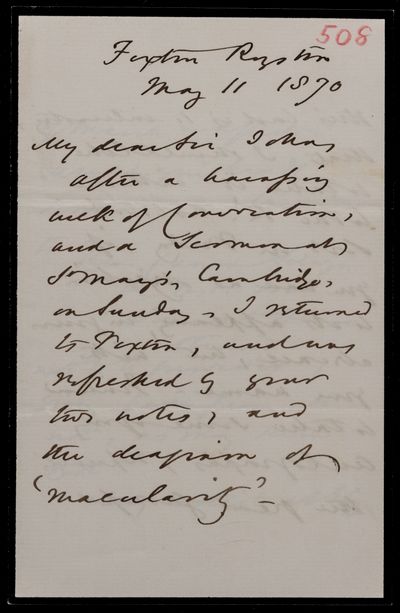 508
Foxton Royston
May 11 1870
My dear Sir John,
after a harassing
week of Convocation,
and a Sermon at
St Mary's, Cambridge,
on Sunday, I returned
to Foxton, and was
refreshed by your
two notes, and
the diapason of
'macularity' –